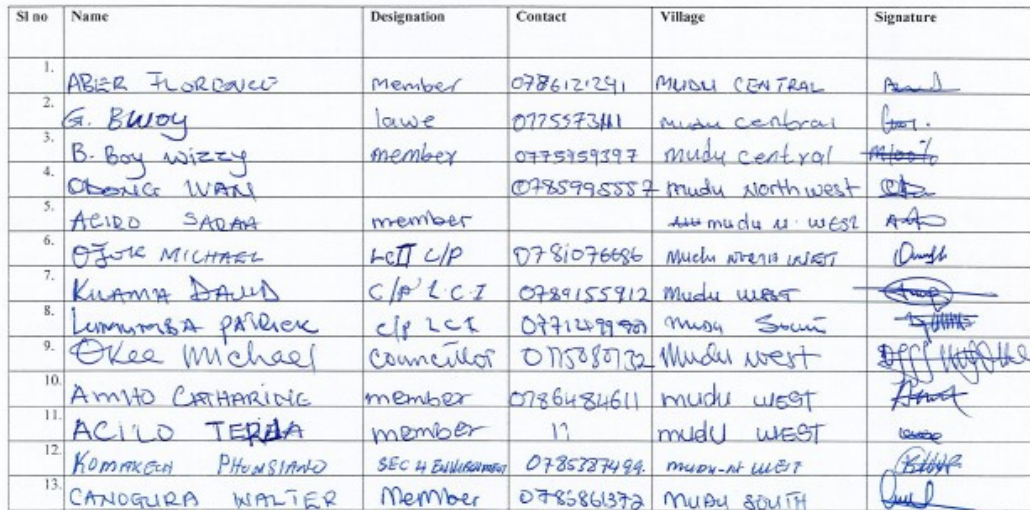 Sl no Name Designation Contact Village Signature
1. ABER FLORENCE member 0786121291 MUDU CENTRAL
2. G. Bwoy lawe mudu central
3. B. Boy wizzy member 0775959397 mudu central
4. ODONG WAN 0785995557 mudu North west
5. ACIRO SARAH member mudu N. WEST
6. OJOK MICHAEL LCII C/P 0781076686 Mudu North WEST
7. KILAMA DAVID C/P L.C.I 0789155912 Mudu WEST
8. LUMUMBA PATRICK C/P LCI mudu South
9. Okee Michael Councillor Mudu west
10. AMITO CATHARINE member 0786484611 mudu WEST
11. ACILO member 11 mudu WEST
12. KOMAKECH SEC 4 ENVIRONMENT 0785387499. MUDU-N WEST
13. CANOGURA WALTER Member 0785861372 MUDU SOUTH